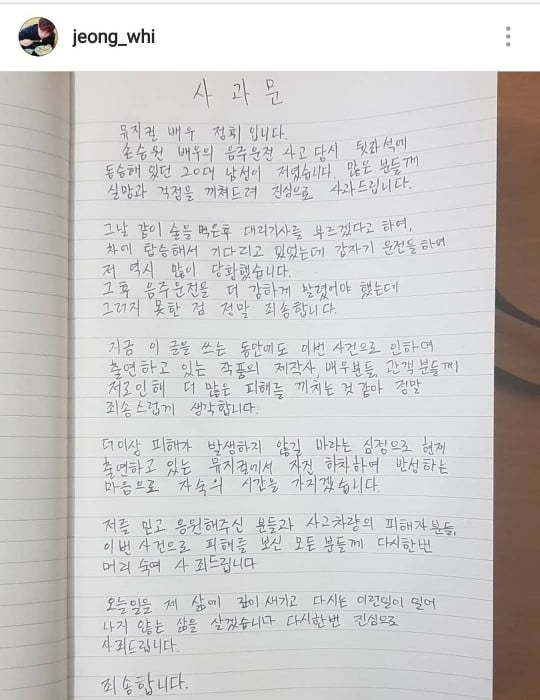 jeong_whi
사 과 문
뮤지컬 배우 정휘 입니다.
손승원 배우의 음주운전 사고 당시 뒷좌석에
동승해 있던 20대 남성이 저였습니다. 많은 분들께
실망과 걱정을 끼쳐드려 진심으로 사과드립니다.
그날 같이 술을 먹은후 대리기사를 부르겠다고 하여,
차에 탑승해서 기다리고 있었는데 갑자기 운전을하여
저 역시 많이 당황했습니다.
그후 음주운전을 더 강하게 말렸어야 했는데
그러지 못한 점 정말 죄송합니다.
지금 이 글을 쓰는 동안에도 이번 사건으로 인하여
출연하고 있는 작품의 제작사, 배우분들, 관객분들께
저로인해 더 많은 피해를 끼치는 것 같아 정말
죄송스럽게 생각합니다.
더이상 피해가 발생하지 않길 바라는 심정으로 현재
출연하고 있는 뮤지컬에서 자진 하차하여 반성하는
마음으로 자숙의 시간을 가지겠습니다.
저를 믿고 응원해주신 분들과 사고차량의 피해자분들,
이번 사건으로 피해를 보신 모든 분들께 다시한번
머리 숙여 사 죄드립니다
오늘일을 제 삶에 깊이 새기고 다시는 이런일이 일어
나지 않는 삶을 살겠습니다 다시한번 진심으로
사죄드립니다.
죄송합니다.